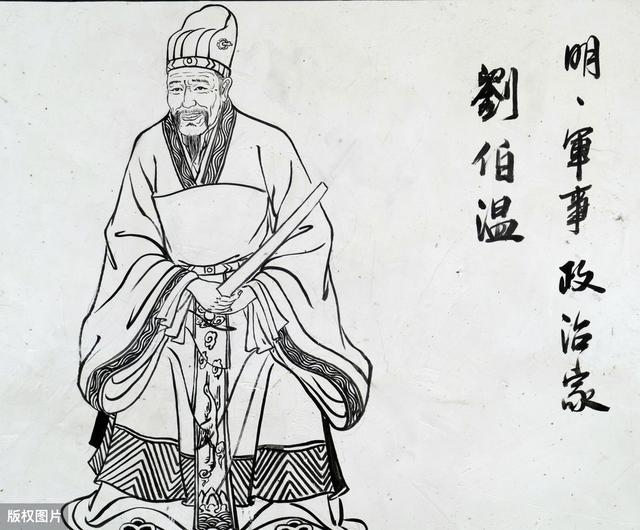 明、軍事政治家
劉伯温
版权图片